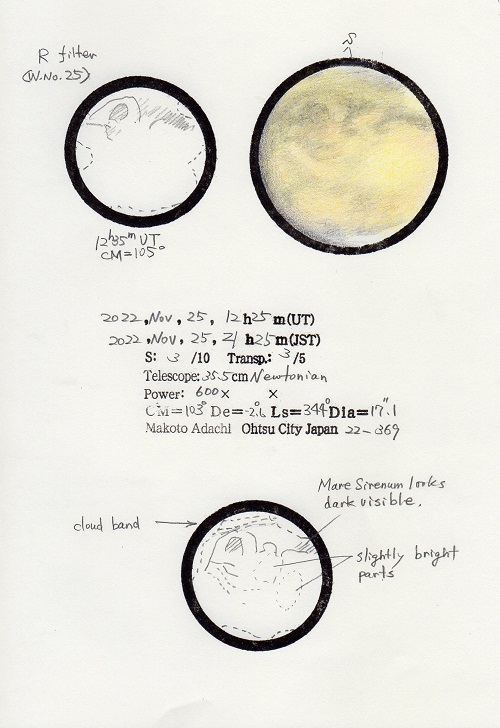 S
R filter
(W.No.25)
12h35m UT
CM=105°
2022, Nov, 25, 12h25m(UT)
2022, Nov, 25, 21h25m(JST)
S: 3 /10 Transp.: 3/5
Telescope: 35.5cm Newtonian
Power: 600× ×
CM=103° De=-2.6° Ls=344° Dia=17".1
Makoto Adachi Ohtsu City Japan 22-369
Mare Sirenum looks
dark visible.
cloud band
slightly bright
parts